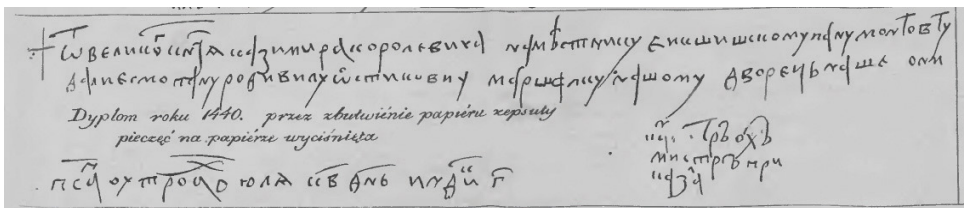 Ѿ великог кнзѧ казимира королевича намѣстнику еикшишскому пану монтовту
дали есмо пану родивилу ѡстиковичу маршалку нашому дворець наше
Dyplom roku 1440. przez zbutwiénie papiéru zepsuty
pieczęć na papiérze wyciśnięta
пса у троцо юлѧ кв днь инди г